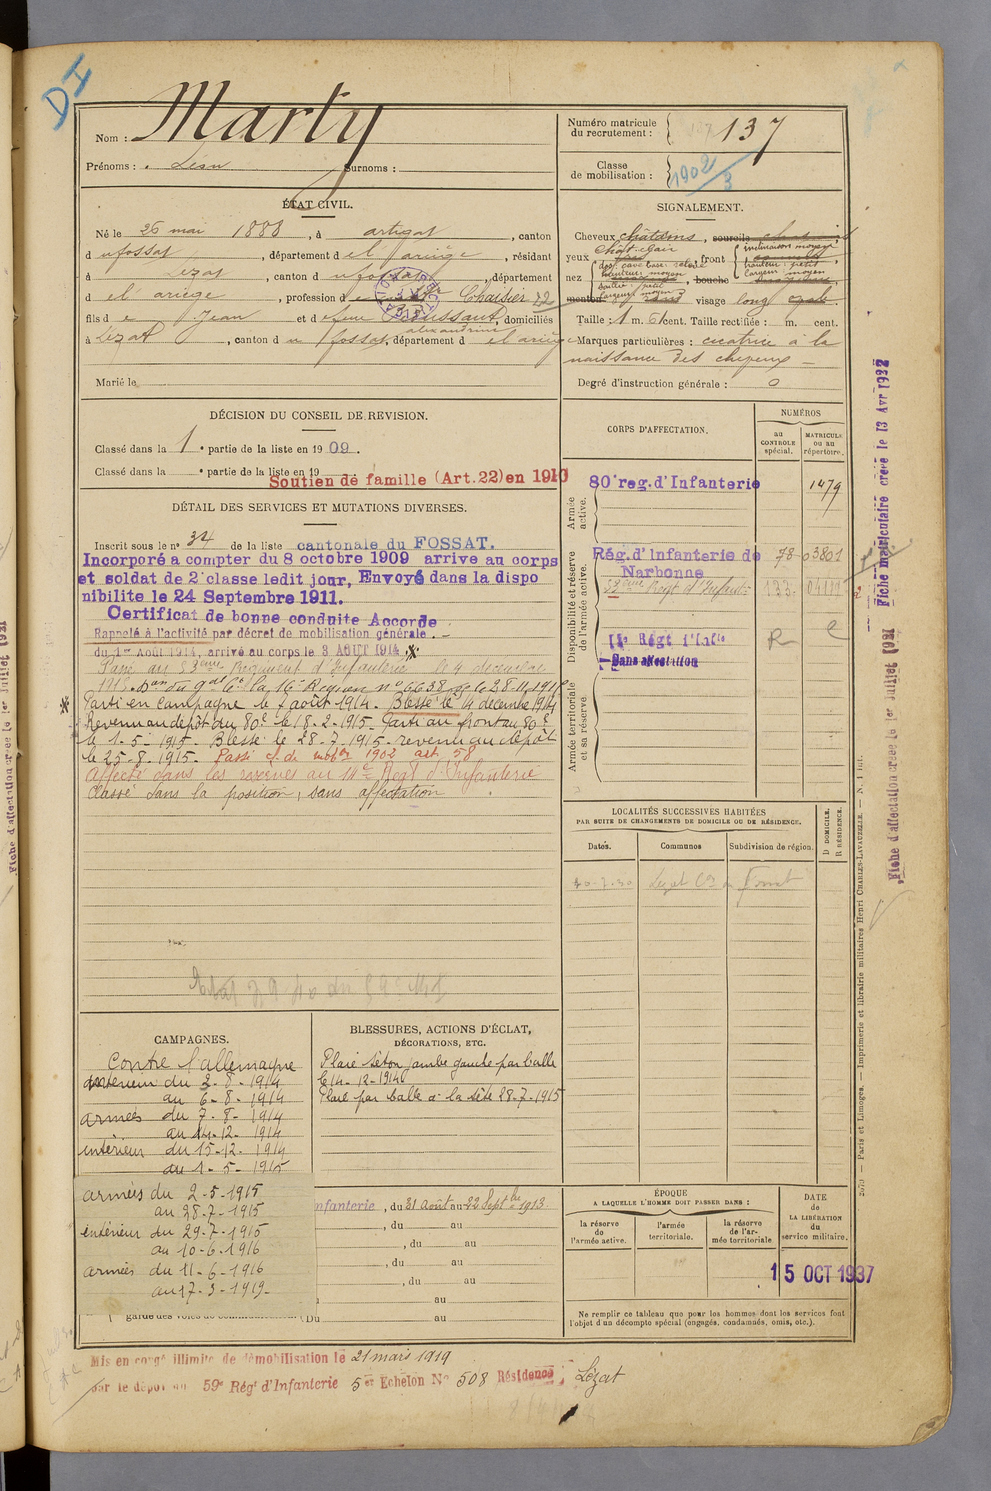 DI
Nom : Marty
Prénoms : Léon Surnoms :
Numéro matricule du recrutement : 137
Classe de mobilisation : 1902/3
ÉTAT CIVIL.
Né le 26 mai 1888, à artigat, canton
d u fossat, département d el ariège, résidant
à Lezat, canton d u fossat, département
d el ariège, profession d e Chaisier 22
fils d e Jean et d e Boussaut alexandrine, domiciliés
à Lézat, canton d u fossat, département d el ariège
Marié le
SIGNALEMENT.
Cheveux châtains, sourcils
yeux chât-clair, front inclinaison moyen hauteur petit largeur moyen
nez dos cave base relevé hauteur moyen saillie petit largeur moyen, bouche
menton visage long
Taille : 1 m. 61 cent. Taille rectifiée : m. cent.
Marques particulières : cicatrice à la
naissance des cheveux
Degré d'instruction générale : 0
DÉCISION DU CONSEIL DE REVISION.
Classé dans la 1e partie de la liste en 1909.
Classé dans la e partie de la liste en 19
Soutien de famille (Art. 22) en 1910
DÉTAIL DES SERVICES ET MUTATIONS DIVERSES.
Inscrit sous le n° 34 de la liste cantonale du FOSSAT.
Incorporé a compter du 8 octobre 1909 arrive au corps
et soldat de 2e classe ledit jour, Envoyé dans la dispo
nibilite le 24 Septembre 1911.
Certificat de bonne conduite Accorde
Rappelé à l'activité par décret de mobilisation générale.
du 1er Août 1914, arrivé au corps le 3 AOUT 1914
Passé au 53ème Régiment d'Infanterie le 4 décembre
Parti en campagne le 7 août 1914. Blessé le 14 décembre 1914
Revenu au dépôt du 80e le 18-2-1915. Parti au front au 80e
le 1-5-1915. Blessé le 28-7-1915. revenu au dépôt
le 25-8-1915. Passé cl. de mobon 1902 art 58
Affecté dans les réserves au 14e Regt d'Infanterie
Classé dans la position, sans affectation
CORPS D'AFFECTATION.
NUMÉROS
au CONTROLE spécial.
MATRICULE ou au répertoire.
Armée active.
80e reg. d'Infanterie 1479
Disponibilité et réserve de l'armée active.
Rég. d'Infanterie de Narbonne 78 03801
Regt d'Infanterie 133
Régt d'Infie
Sans affectation
Armée territoriale et sa réserve.
LOCALITÉS SUCCESSIVES HABITÉES
PAR SUITE DE CHANGEMENTS DE DOMICILE OU DE RÉSIDENCE.
Dates. Communes Subdivision de région.
D DOMICILE. R RÉSIDENCE.
30-7-30 Lézat
CAMPAGNES.
Contre l'allemagne
intérieur du 2-8-1914
au 6-8-1914
armées du 7-8-1914
au 14-12-1914
intérieur du 15-12-1914
au 1-5-1915
armées du 2-5-1915
au 28-7-1915
intérieur du 29-7-1915
au 10-6-1916
armées du 11-6-1916
au 17-3-1919
BLESSURES, ACTIONS D'ÉCLAT,
DÉCORATIONS, ETC.
Plaie séton jambe gauche par balle
le 14-12-1914
Plaie par balle à la tête 28-7-1915
nfanterie, du 31 Août au 22 Septbre 1913
, du au
, du au
, du au
, du au
au
garde des voies de communication (Du au
ÉPOQUE
A LAQUELLE L'HOMME DOIT PASSER DANS :
la réserve de l'armée active.
l'armée territoriale.
la réserve de l'armée territoriale
DATE de LA LIBÉRATION du service militaire.
15 OCT 1937
Ne remplir ce tableau que pour les hommes dont les services font
l'objet d'un décompte spécial (engagés, condamnés, omis, etc.).
Mis en congé illimité de démobilisation le 21 mars 1919
par le dépôt du 59e Régt d'Infanterie 5e Echelon N° 508 Résidence : Lézat
Fiche matriculaire créée le 13 Avr 1932
Fiche d'affectation créée le 1er Juillet 1931
Paris et Limoges. — Imprimerie et librairie militaires Henri CHARLES-LAVAUZELLE. — N. 1 int.
Fiche d'affectation créée le 1er Juillet 1931